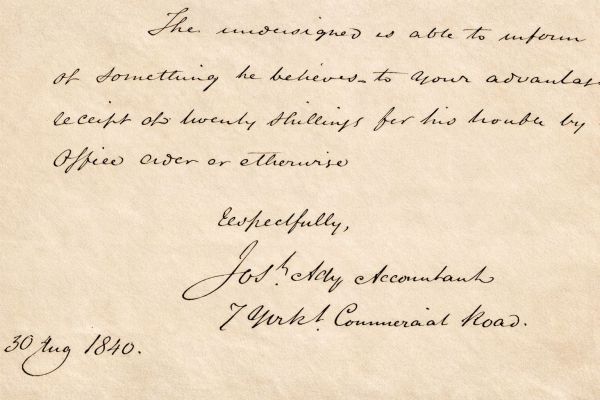 The undersigned is able to inform
of something he believes to your advantag
receipt of twenty shillings for his trouble by
Office order or otherwise
Respectfully,
Josh Ady Accountant
7 York t. Commercial Road.
30 Aug 1840.